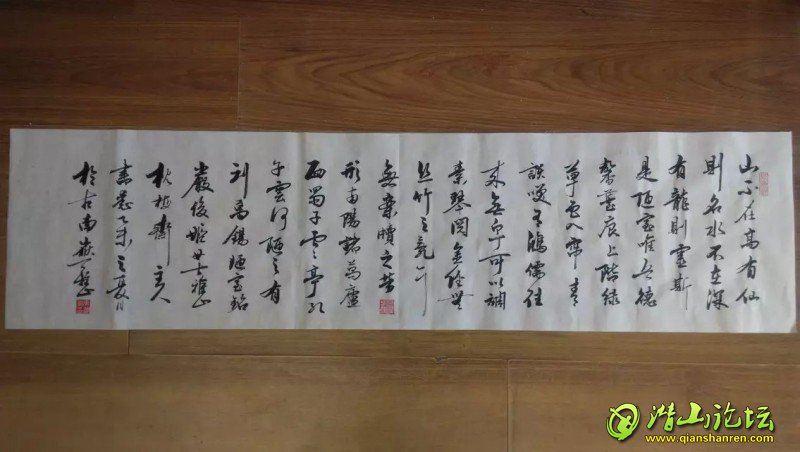 山不在高有仙
則名水不在深
有龍則靈斯
是陋室唯吾德
馨苔痕上階緑
草色入簾青
談笑有鴻儒往
来無白丁可以調
素琴閱金經無
丝竹之乱耳
無案牘之劳
形南陽諸葛廬
西蜀子雲亭孔
子云何陋之有
刘禹錫陋室銘
女士雅正
齋主人
乙未之夏月
於古南嶽
潜山论坛
www.qianshanren.com